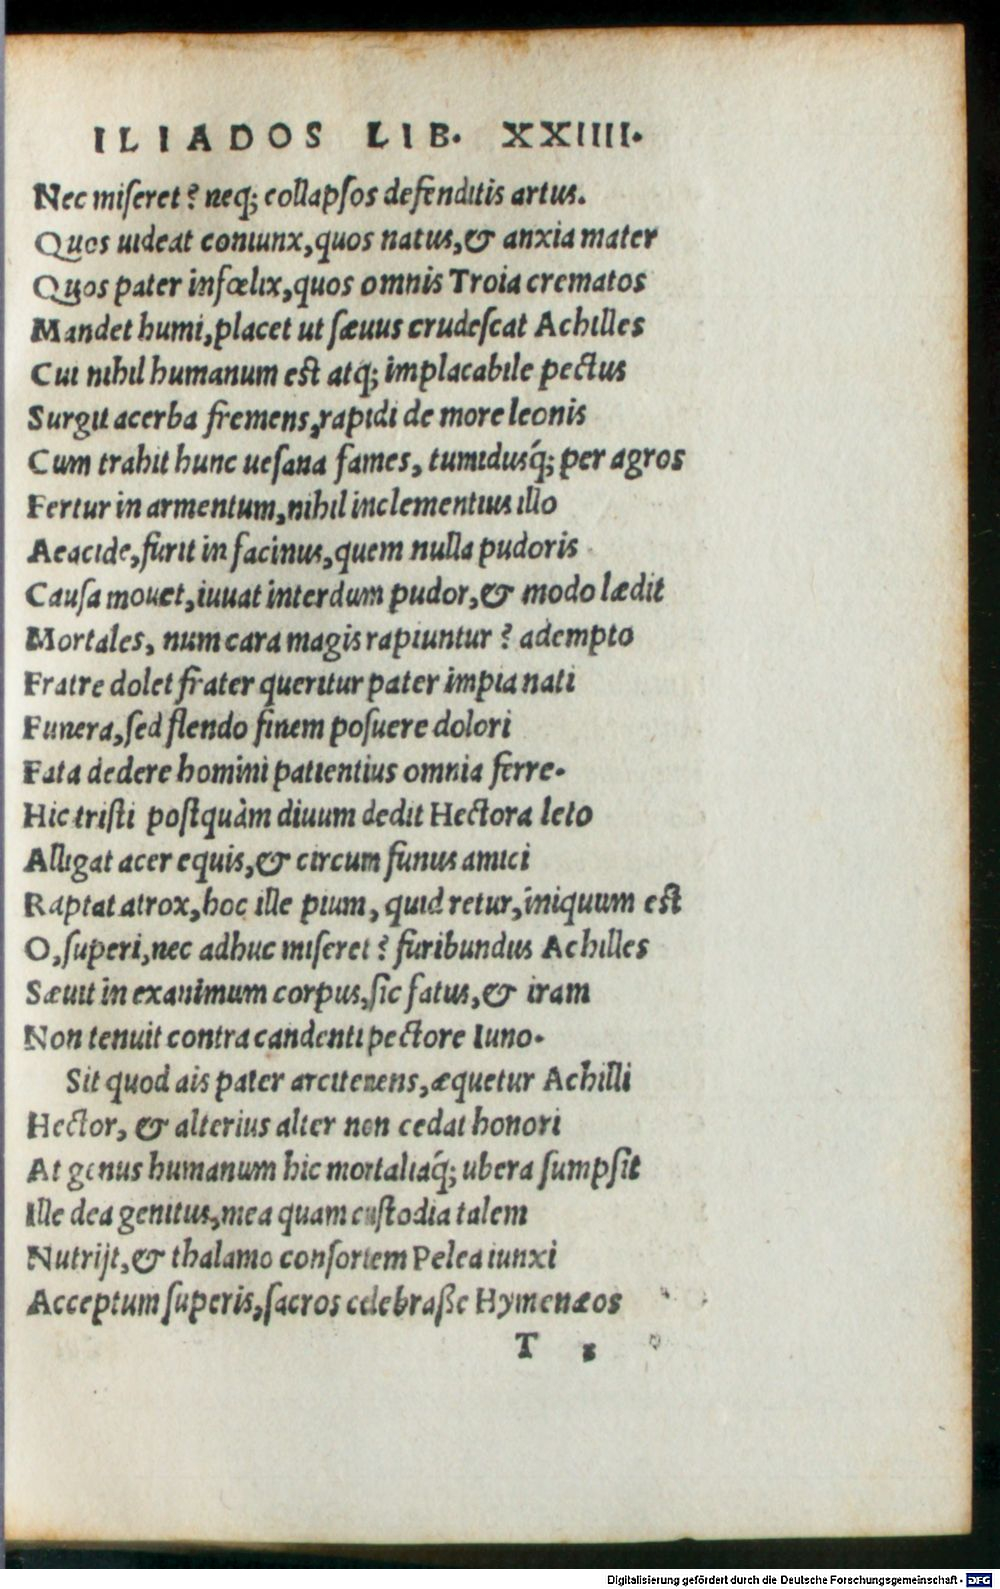 ILIADOS LIB. XXIIII.
Nec miſeret? neq; collapſos defenditis artus.
Quos uideat coniunx, quos natus, & anxia mater
Quos pater infœlix, quos omnis Troia crematos
Mandet humi, placet ut ſæuus crudeſcat Achilles
Cui nihil humanum eſt atq; implacabile pectus
Surgit acerba fremens, rapidi de more leonis
Cum trahit hunc ueſana fames, tumidusq́; per agros
Fertur in armentum, nihil inclementius illo
Aeacide, furit in facinus, quem nulla pudoris
Cauſa mouet, iuuat interdum pudor, & modo lædit
Mortales, num cara magis rapiuntur? adempto
Fratre dolet frater queritur pater impia nati
Funera, ſed flendo finem poſuere dolori
Fata dedere homini patientius omnia ferre.
Hic triſti poſtquàm diuum dedit Hectora leto
Alligat acer equis, & circum funus amici
Raptat atrox, hoc ille pium, quid retur, iniquum eſt
O, ſuperi, nec adhuc miſeret? furibundus Achilles
Sæuit in exanimum corpus, ſic fatus, & iram
Non tenuit contra candenti pectore Iuno.
Sit quod ais pater arcitenens, æquetur Achilli
Hector, & alterius alter non cedat honori
At genus humanum hic mortaliaq́; ubera ſumpſit
Ille dea genitus, mea quam cuſtodia talem
Nutrijt, & thalamo conſortem Pelea iunxi
Acceptum ſuperis, ſacros celebraſſe Hymenæos
T
Digitalisierung gefördert durch die Deutsche Forschungsgemeinschaft - DFG